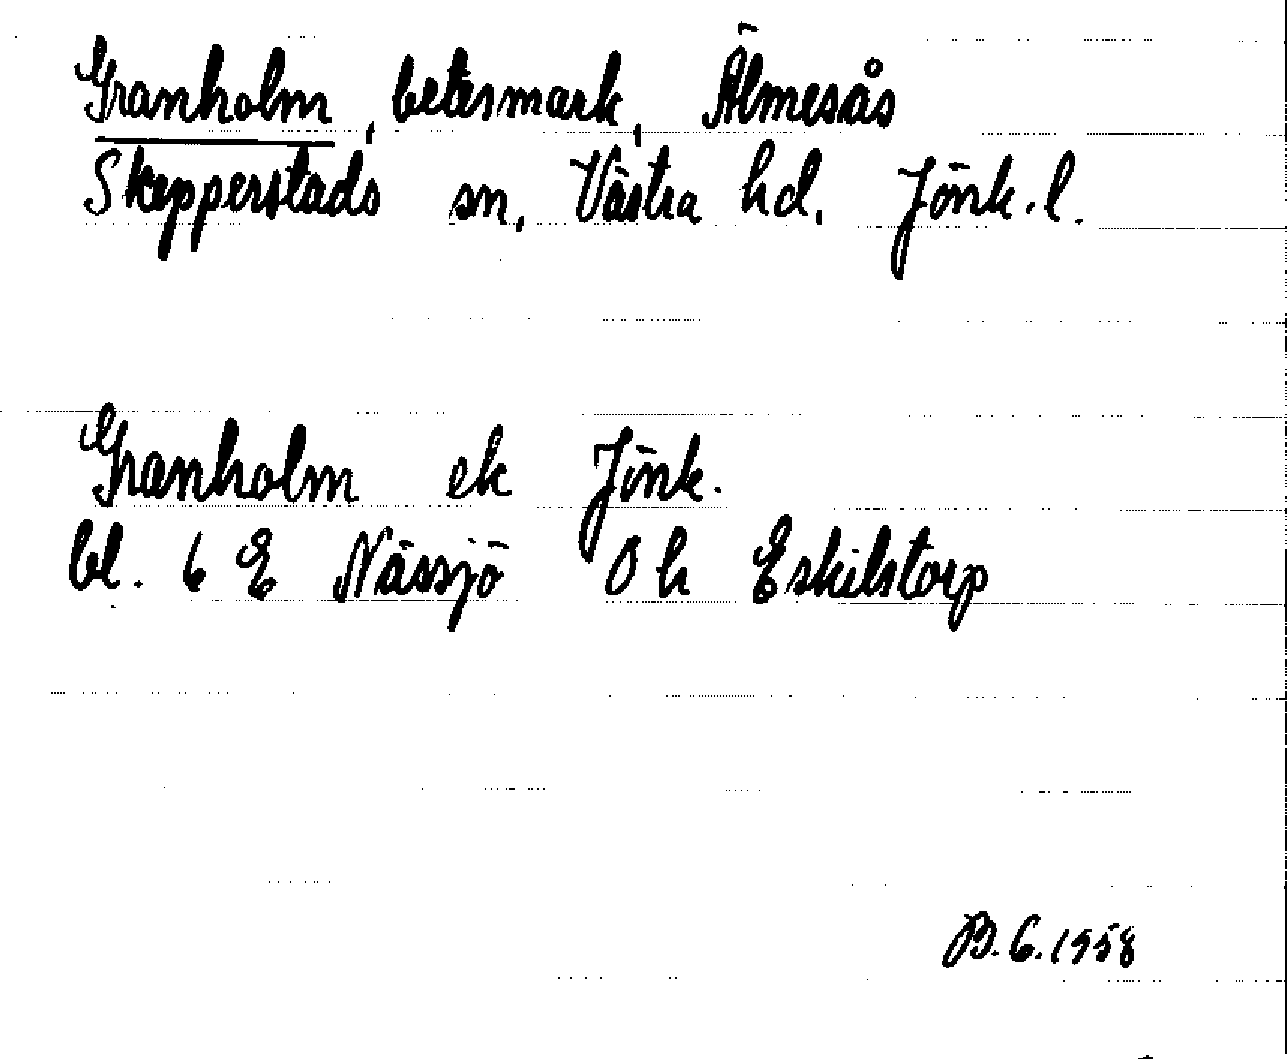 Granholm, betesmark, Älmesås
Skepperstads sn, Västra hd. Jönk.l.
Granholm ek Jönk.
bl. 6 E Nässjö 0 h Eskilstorp
B.G.1958